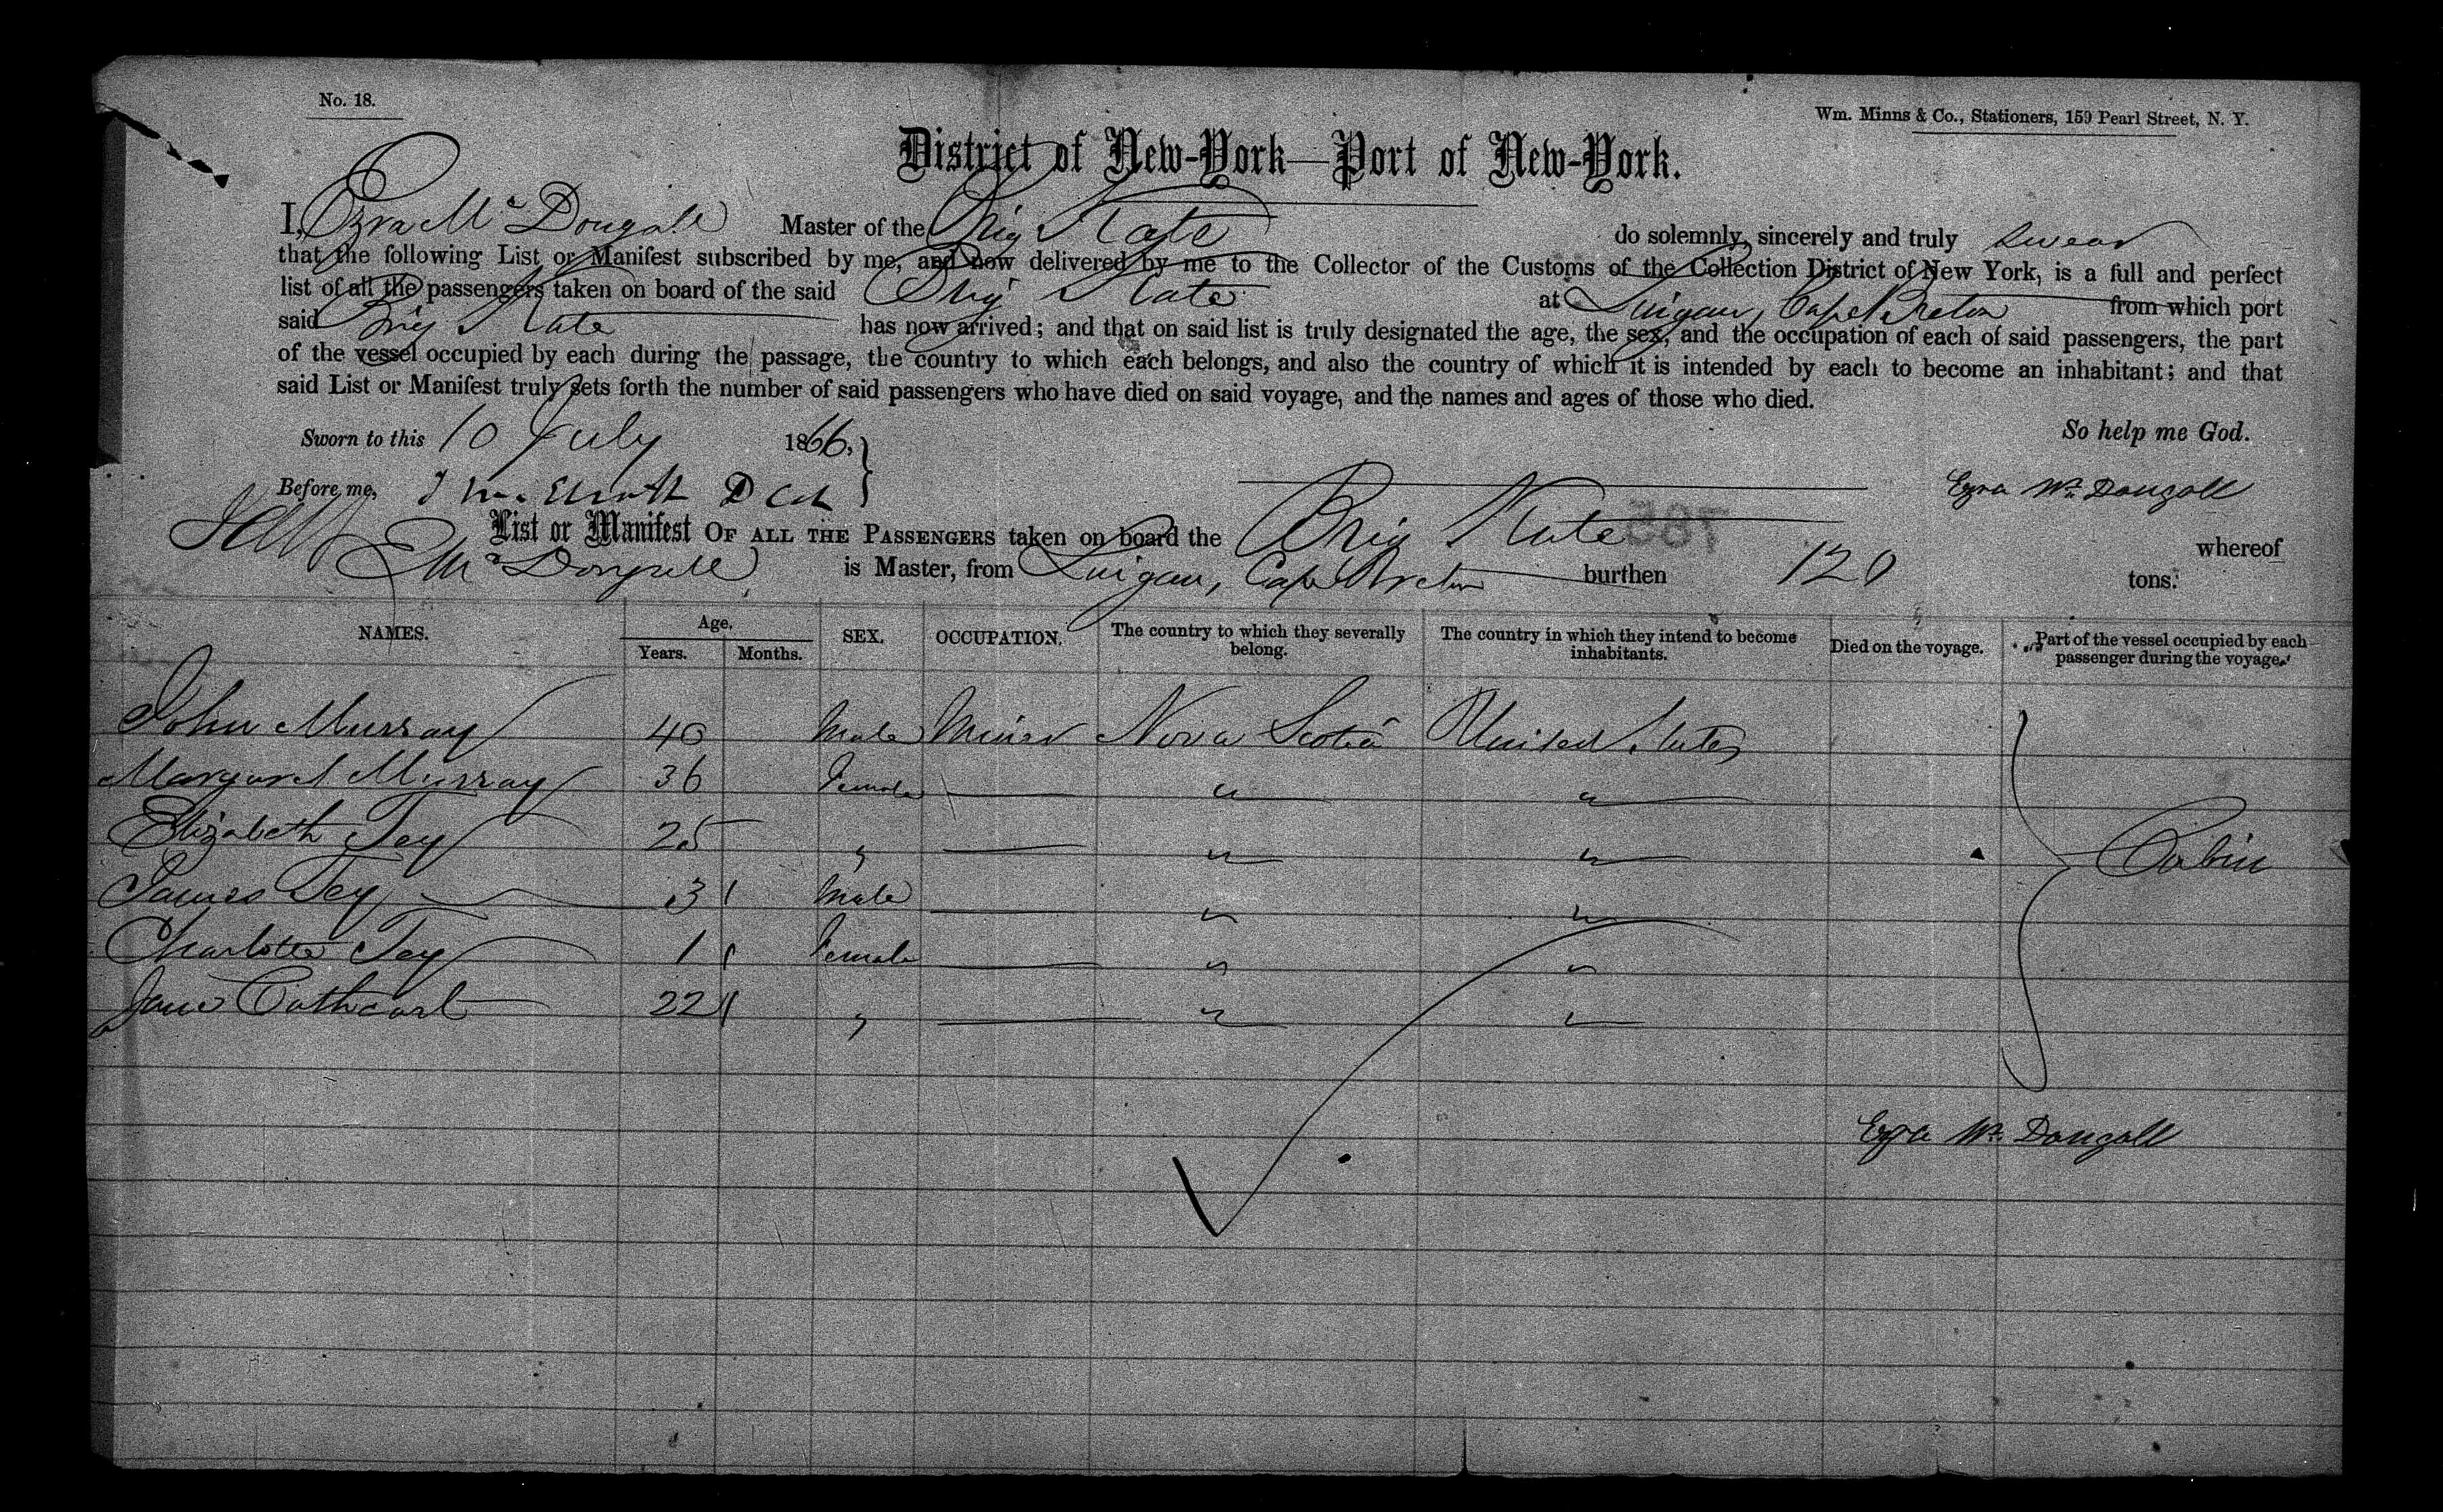 No. 18.
Wm. Minns & Co., Stationers, 159 Pearl Street, N. Y.
District of New-York—Port of New-York.
I, Ezra Mc Dougall Master of the Brig Kate do solemnly, sincerely and truly swear
that the following List or Manifest subscribed by me, and now delivered by me to the Collector of the Customs of the Collection District of New York, is a full and perfect
list of all the passengers taken on board of the said Brig Kate at Lingan, Cape Breton from which port
said Brig Kate has now arrived; and that on said list is truly designated the age, the sex, and the occupation of each of said passengers, the part
of the vessel occupied by each during the passage, the country to which each belongs, and also the country of which it is intended by each to become an inhabitant; and that
said List or Manifest truly sets forth the number of said passengers who have died on said voyage, and the names and ages of those who died.
Sworn to this 10 July 1866. So help me God.
Before me, D Col Ezra Mc Dougall
List or Manifest OF ALL THE PASSENGERS taken on board the Brig Kate whereof
E Mc Dougall is Master, from Lingan, Cape Breton burthen 120 tons.
NAMES. Age. Years. Months. SEX. OCCUPATION. The country to which they severally belong. The country in which they intend to become inhabitants. Died on the voyage. Part of the vessel occupied by each passenger during the voyage.
John Murray 40 Male Miner Nova Scotia United States
Margaret Murray 36 Female " "
Elizabeth Tey 25 " " "
James Tey 3 Male " "
Charlotte Tey 1 Female " "
Jane Cathcart 22 " " "
Cabin
Ezra Mc Dougall